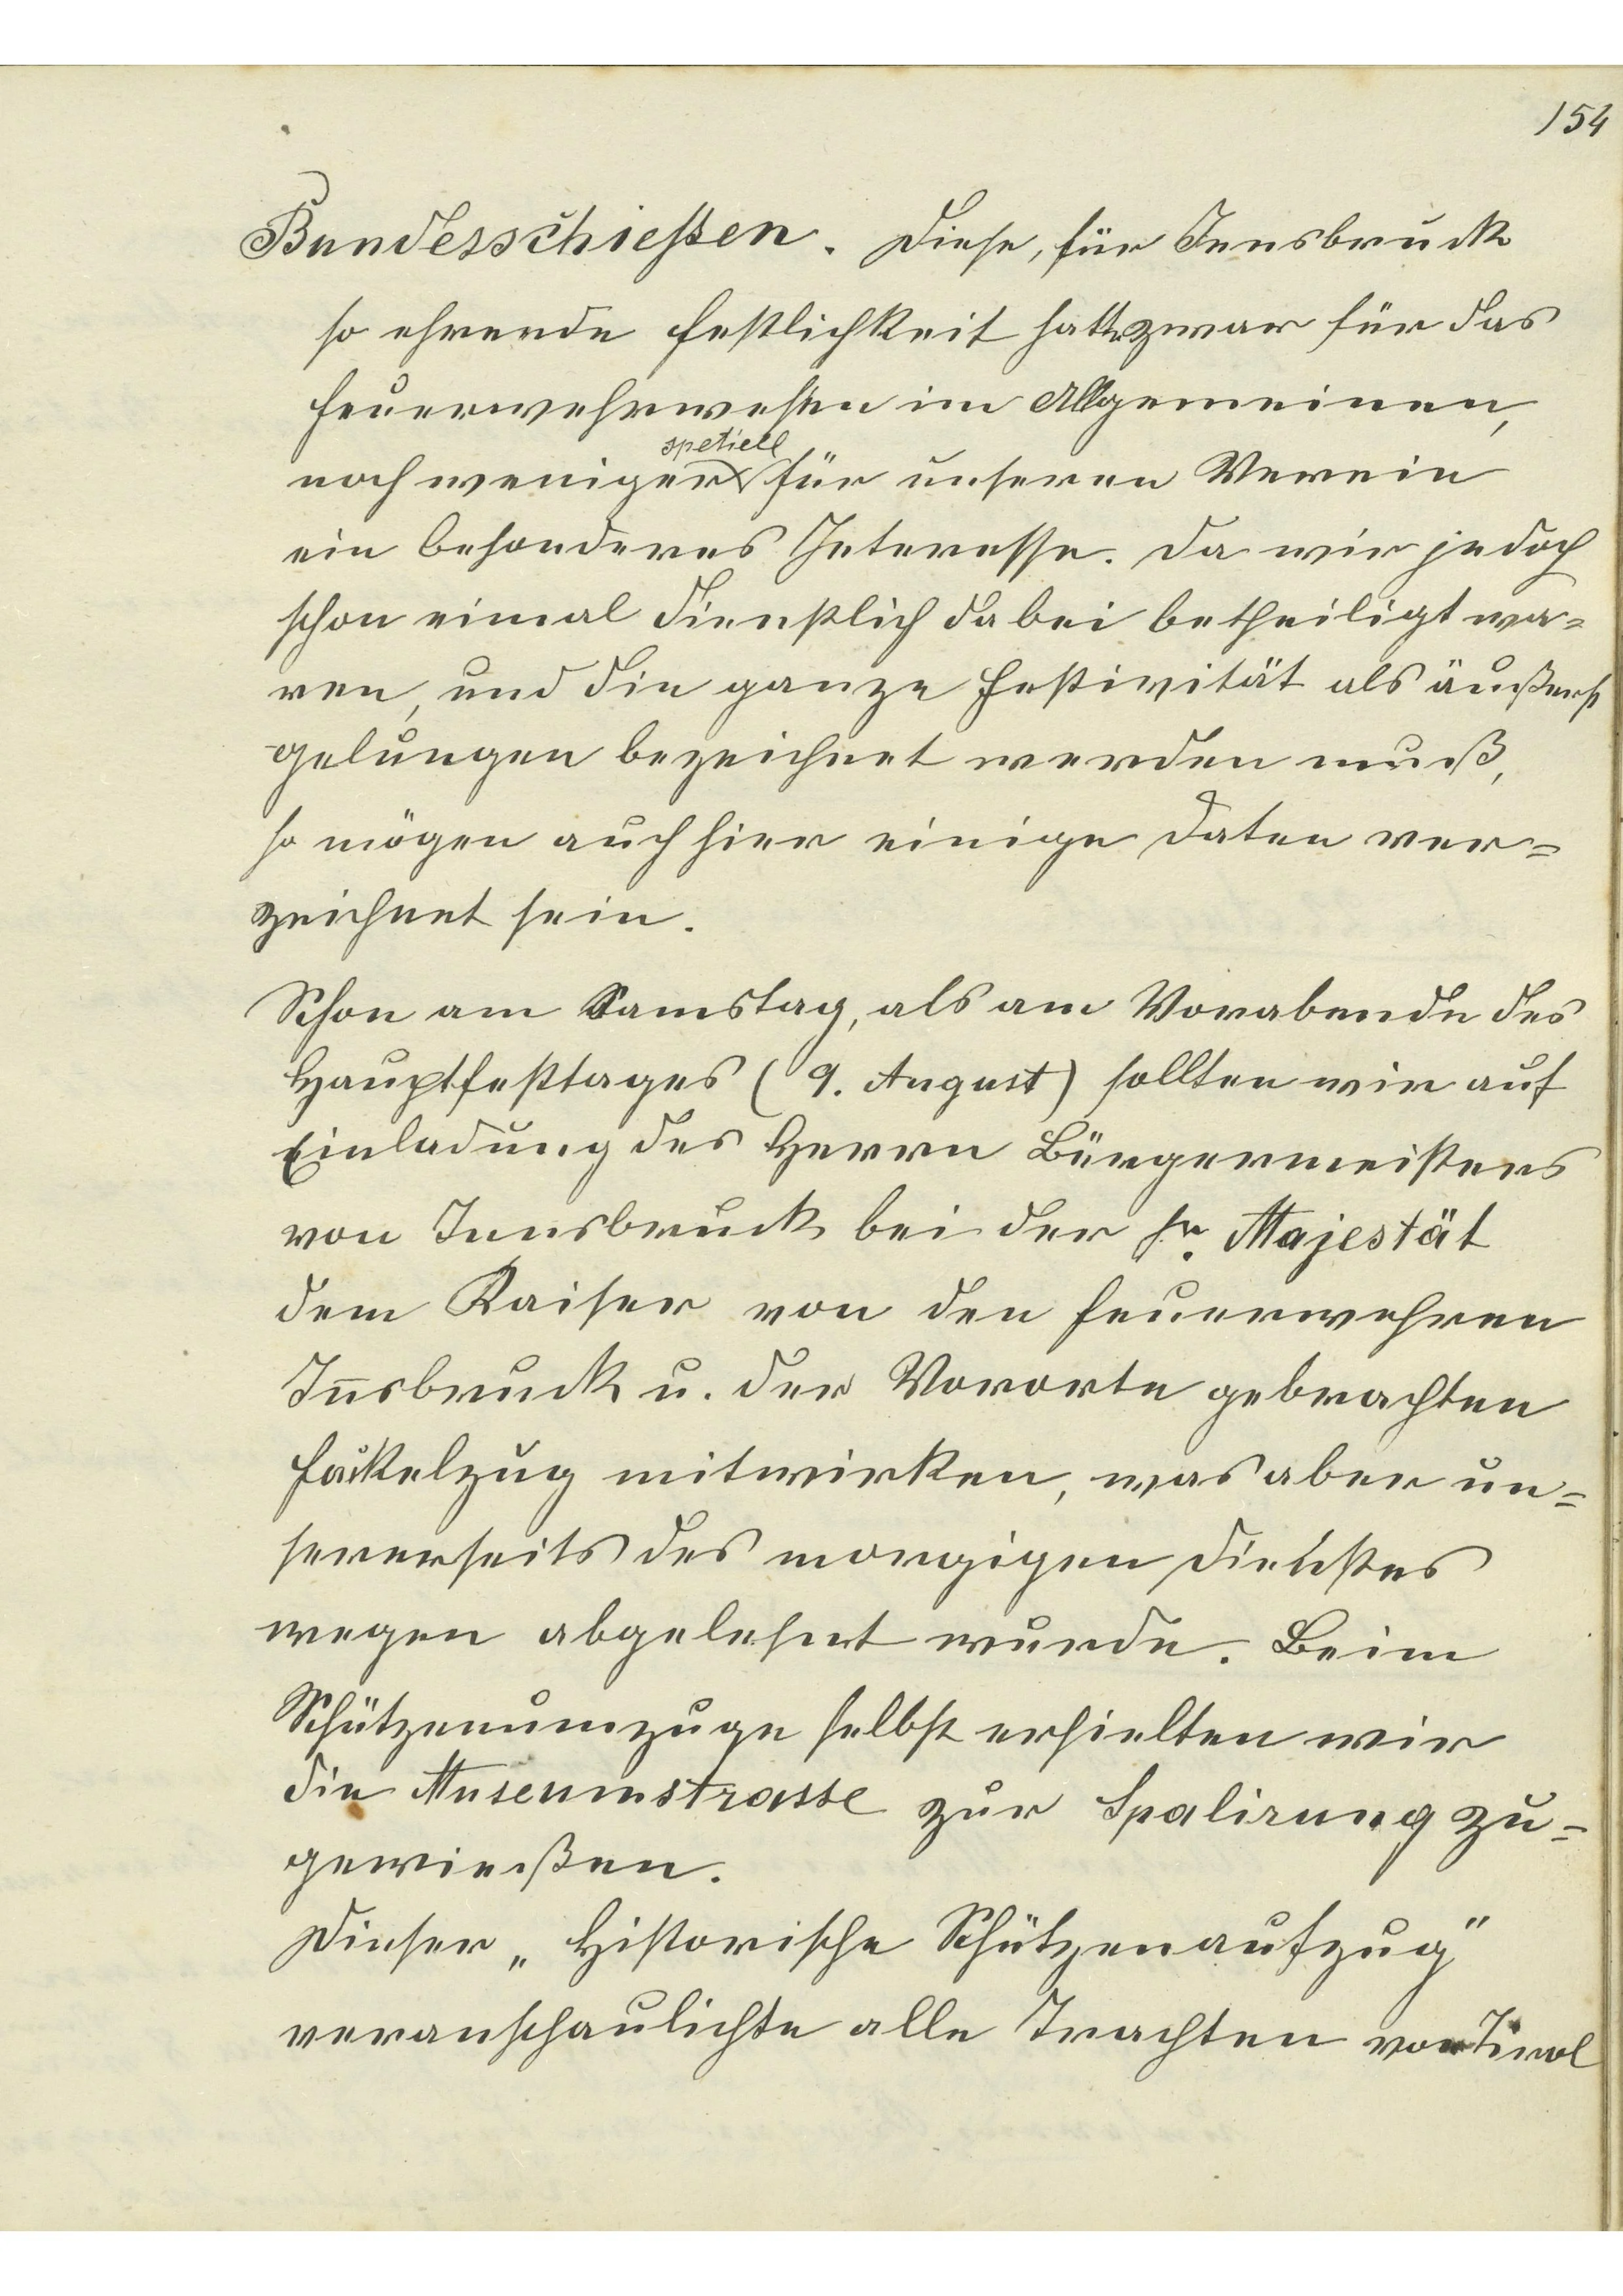 154
Bundesschießen. Diese, für Innsbruck
so ehrende Festlichkeit hatte zwar für das
Feuerwehrwesen im Allgemeinen,
spetiell
noch weniger für unseren Verein
ein besonderes Interesse. Da wir jedoch
schon eimal dienstlich dabei betheiligt wa=
ren, und die ganze Festivität als äußerst
gelungen bezeichnet werden muß,
so mögen auch hier einige Daten ver=
zeichnet sein.
Schon am Samstag, als am Vorabende des
Hauptfesttages (9. August) sollten wir auf
Einladung des Herrn Bürgermeisters
von Innsbruck bei der Sr. Majestät
dem Kaiser von den Feuerwehren
Iñsbruck u. der Vororte gebrachten
Fackelzug mitwirken, was aber un=
sererseits des morgigen Dienstes
wegen abgelehnt wurde. Beim
Schützenumzuge selbst erhielten wir
die Museumstrasse zur Spalirung zu=
gewießen.
Dieser „Historische Schützenaufzug"
veranschaulichte alle Trachten von Tirol